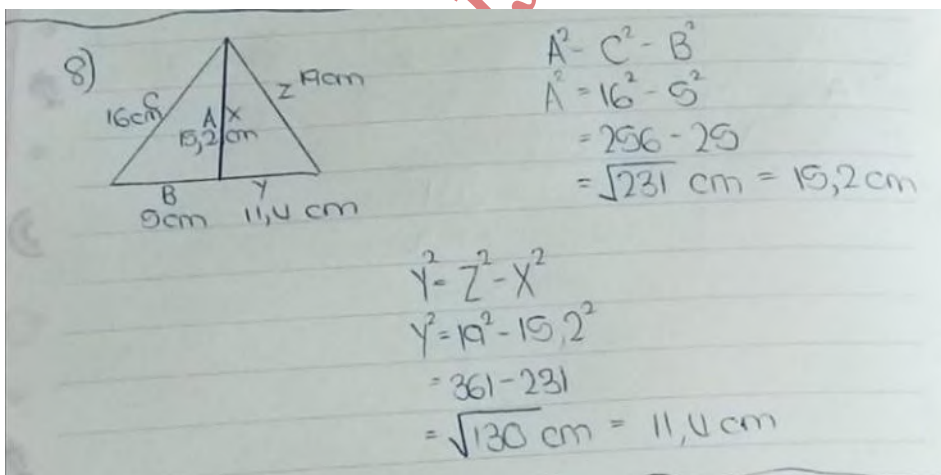 8)
16cm C
A X
15,2 cm
Z 19cm
B Y
5cm 11,4 cm
A² = C² - B²
A² = 16² - 5²
= 256 - 25
= √231 cm = 15,2 cm
Y² = Z² - X²
Y² = 19² - 15,2²
= 361 - 231
= √130 cm = 11,4 cm